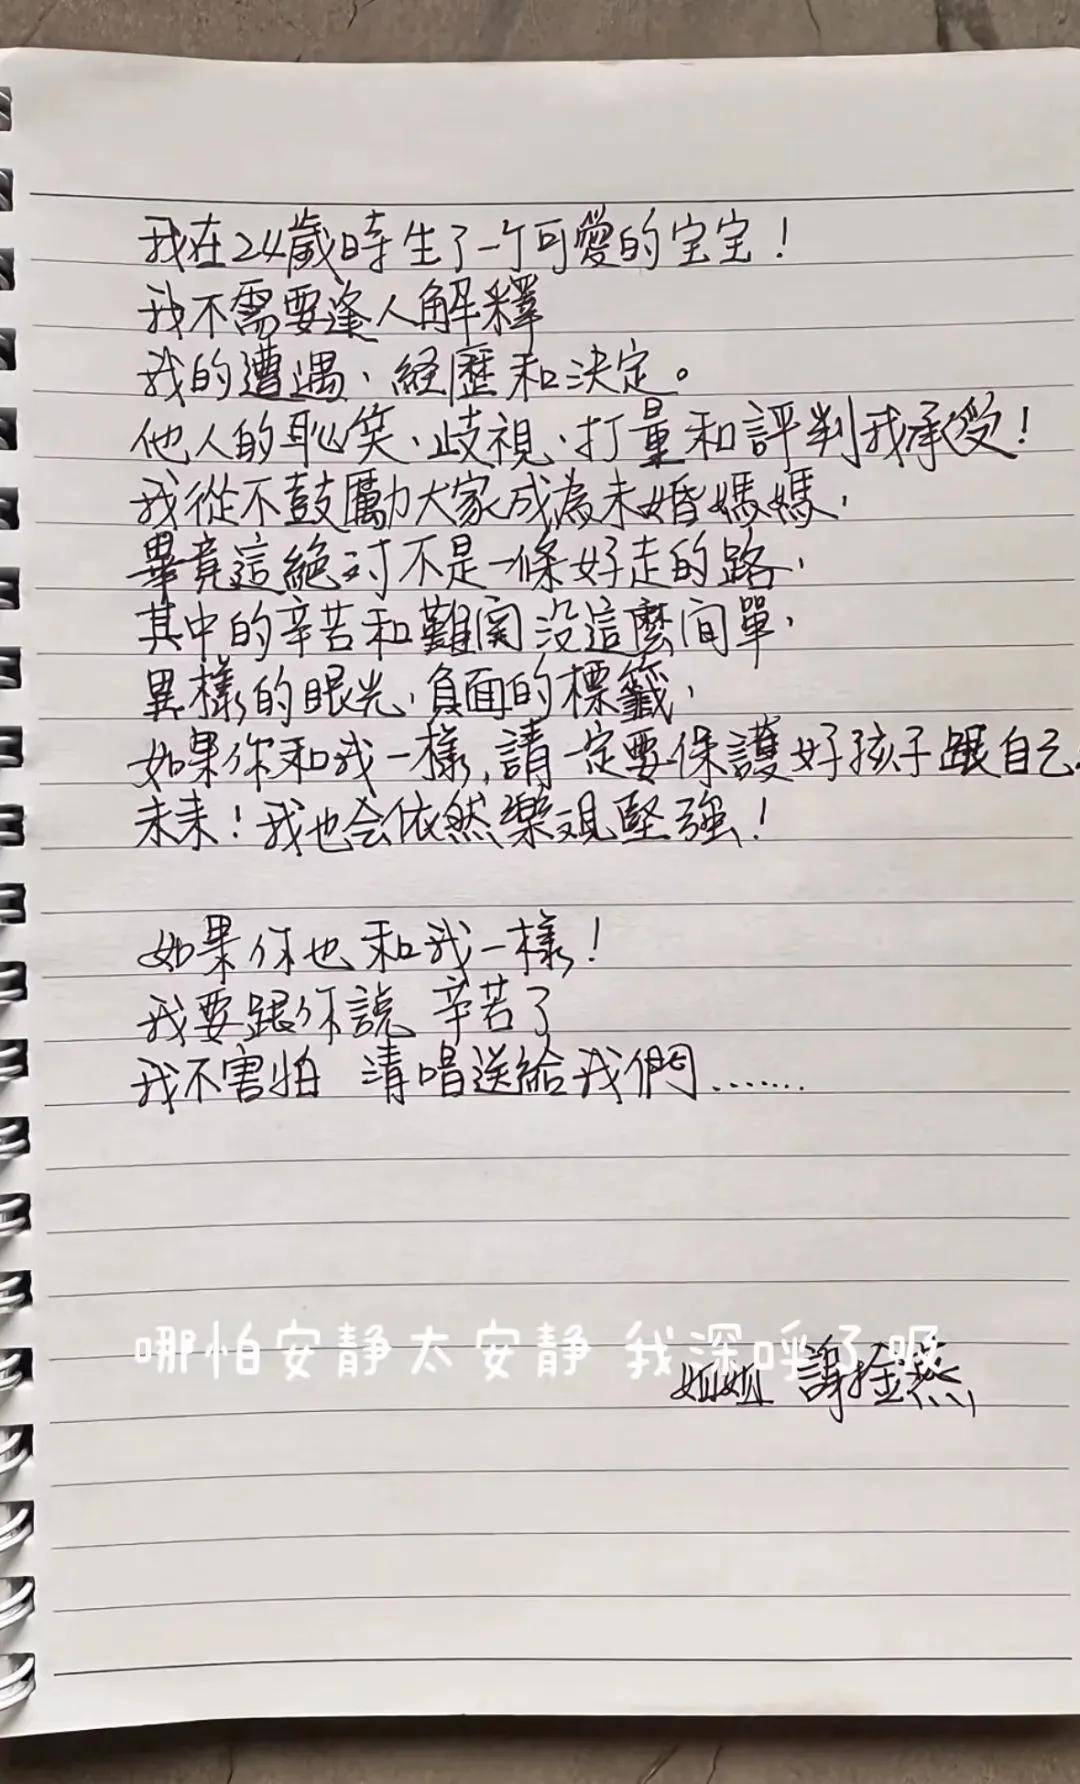 我在24歲時生了一个可愛的宝宝！
我不需要逢人解釋
我的遭遇、経歷和決定。
他人的恥笑、歧視、打量和評判我承受！
我從不鼓勵大家成為未婚媽媽，
畢竟這絕对不是一條好走的路，
其中的辛苦和難関没這麼间單，
異樣的眼光、負面的標籤，
如果你和我一樣，請一定要保護好孩子跟自己。
未来！我也会依然樂观堅強！
如果你也和我一樣！
我要跟你說 辛苦了
我不害怕 清唱送給我們.......
哪怕安静太安静 我深呼了吸
姐姐 謝金燕